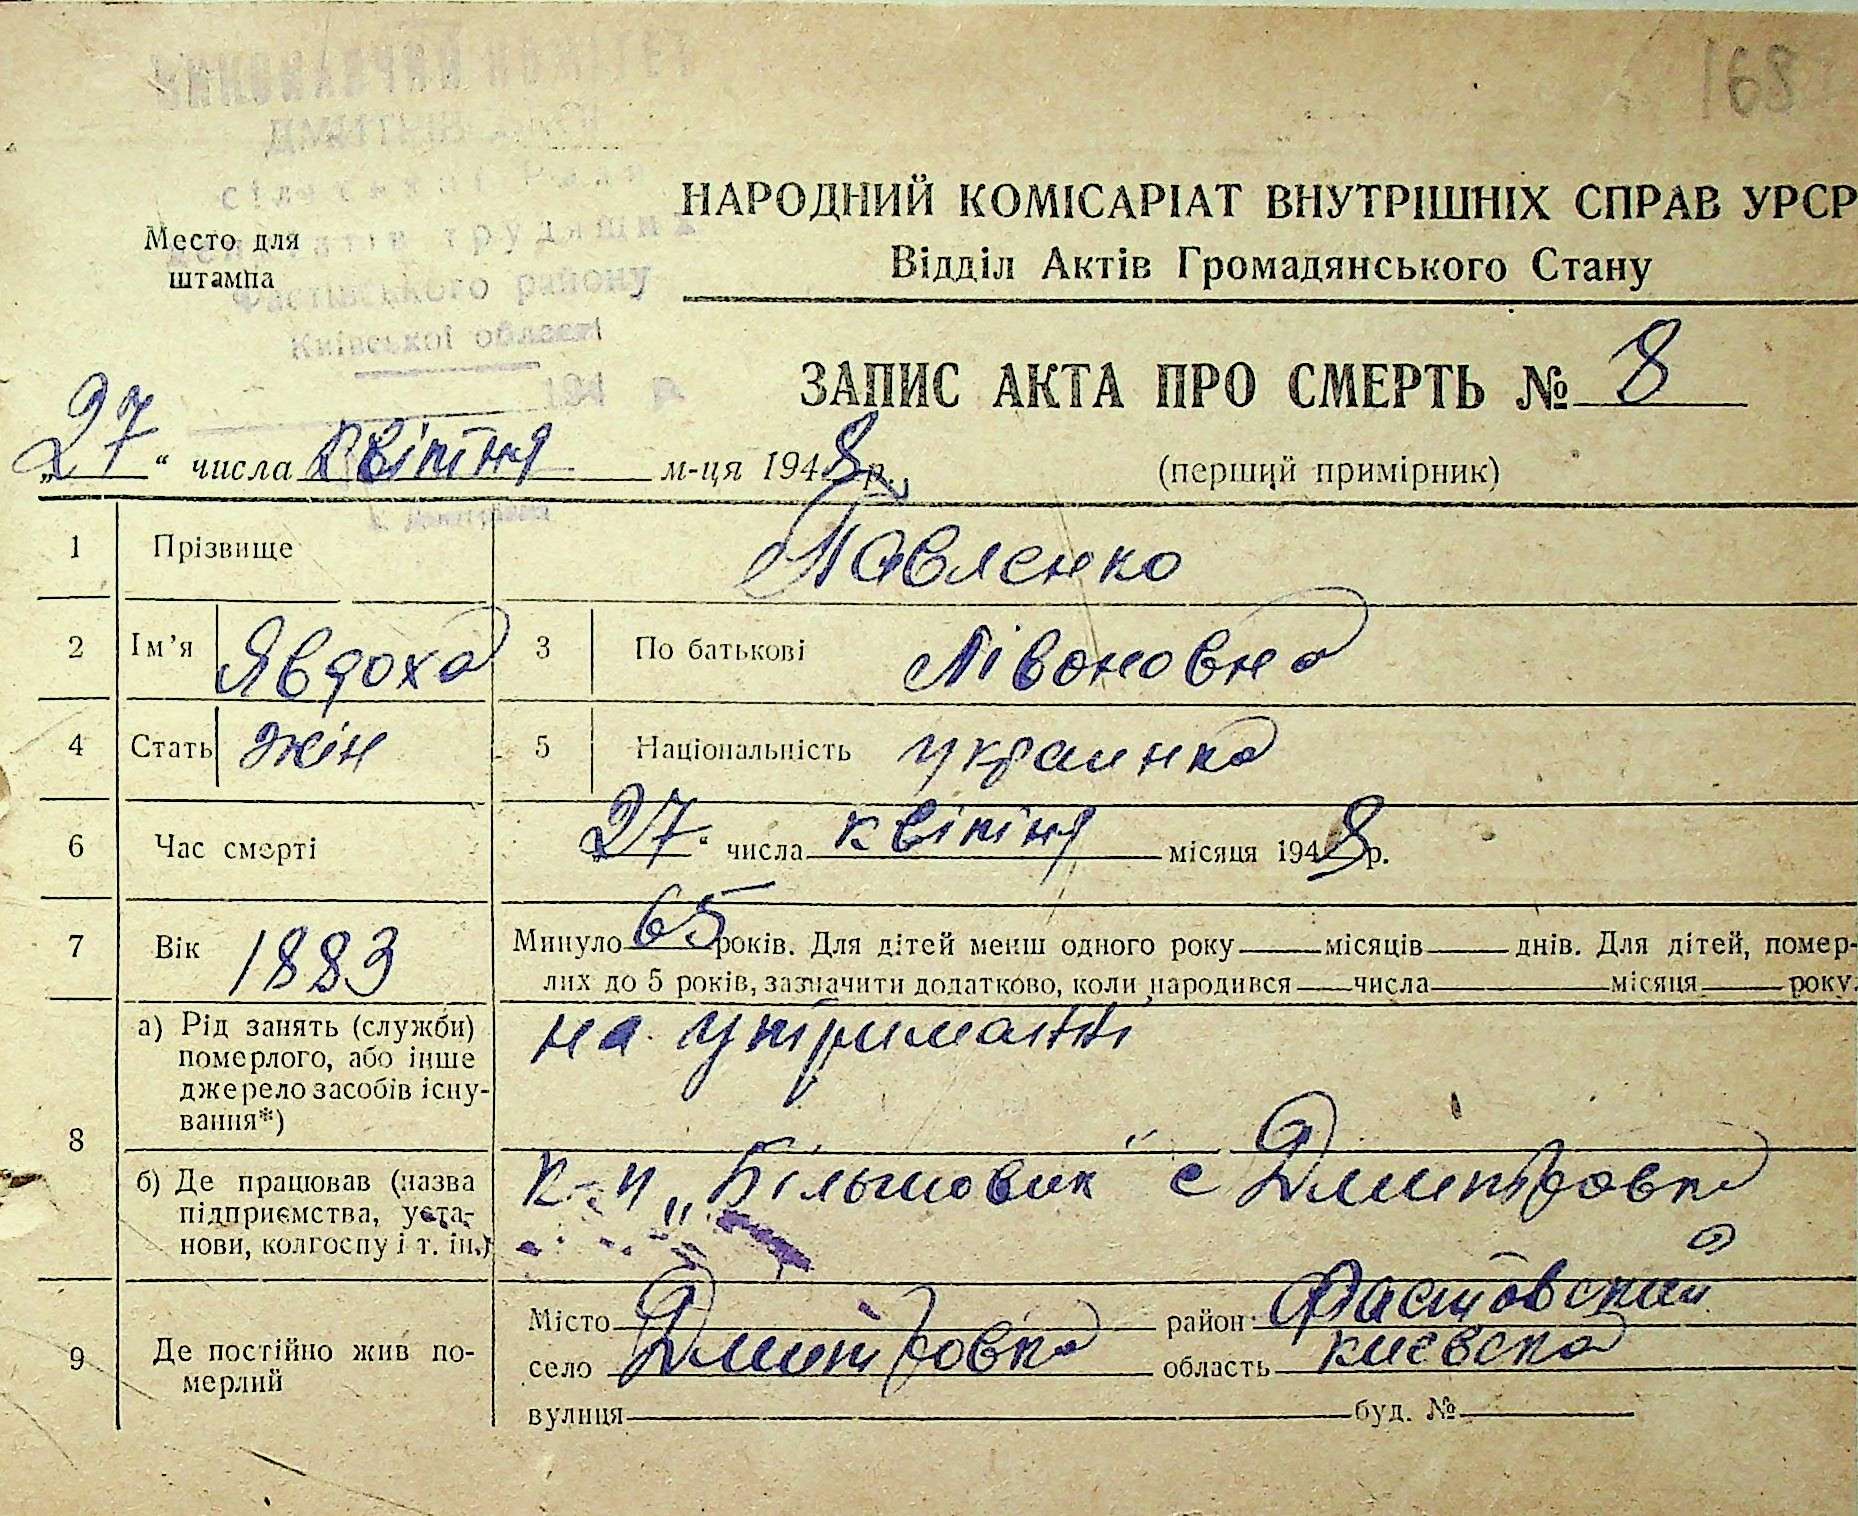 168
ВИКОНАВЧИЙ КОМІТЕТ
сільської Ради
депутатів трудящих
Фастівського району
Київської області
194 р.
Место для
штампа
НАРОДНИЙ КОМІСАРІАТ ВНУТРІШНІХ СПРАВ УРСР
Відділ Актів Громадянського Стану
ЗАПИС АКТА ПРО СМЕРТЬ № 8
„27“ числа квітня м-ця 1948 р.
(перший примірник)
1 Прізвище Павленко
2 Ім'я Явдоха 3 По батькові Лівоновна
4 Стать жін 5 Національність украинка
6 Час смерті „27“ числа квітня місяця 1948 р.
7 Вік 1883 Минуло 65 років. Для дітей менш одного року місяців днів. Для дітей, помер-
лих до 5 років, зазначити додатково, коли народився числа місяця року.
8 а) Рід занять (служби) на утриманні
померлого, або інше
джерело засобів існу-
вання*)
б) Де працював (назва к-п „Більшовик“ с Дмитровка
підприємства, уста-
нови, колгоспу і т. ін.)
9 Де постійно жив по-
мерлий
Місто район Фастовский
село Дмитровка область киевска
вулиця буд. №